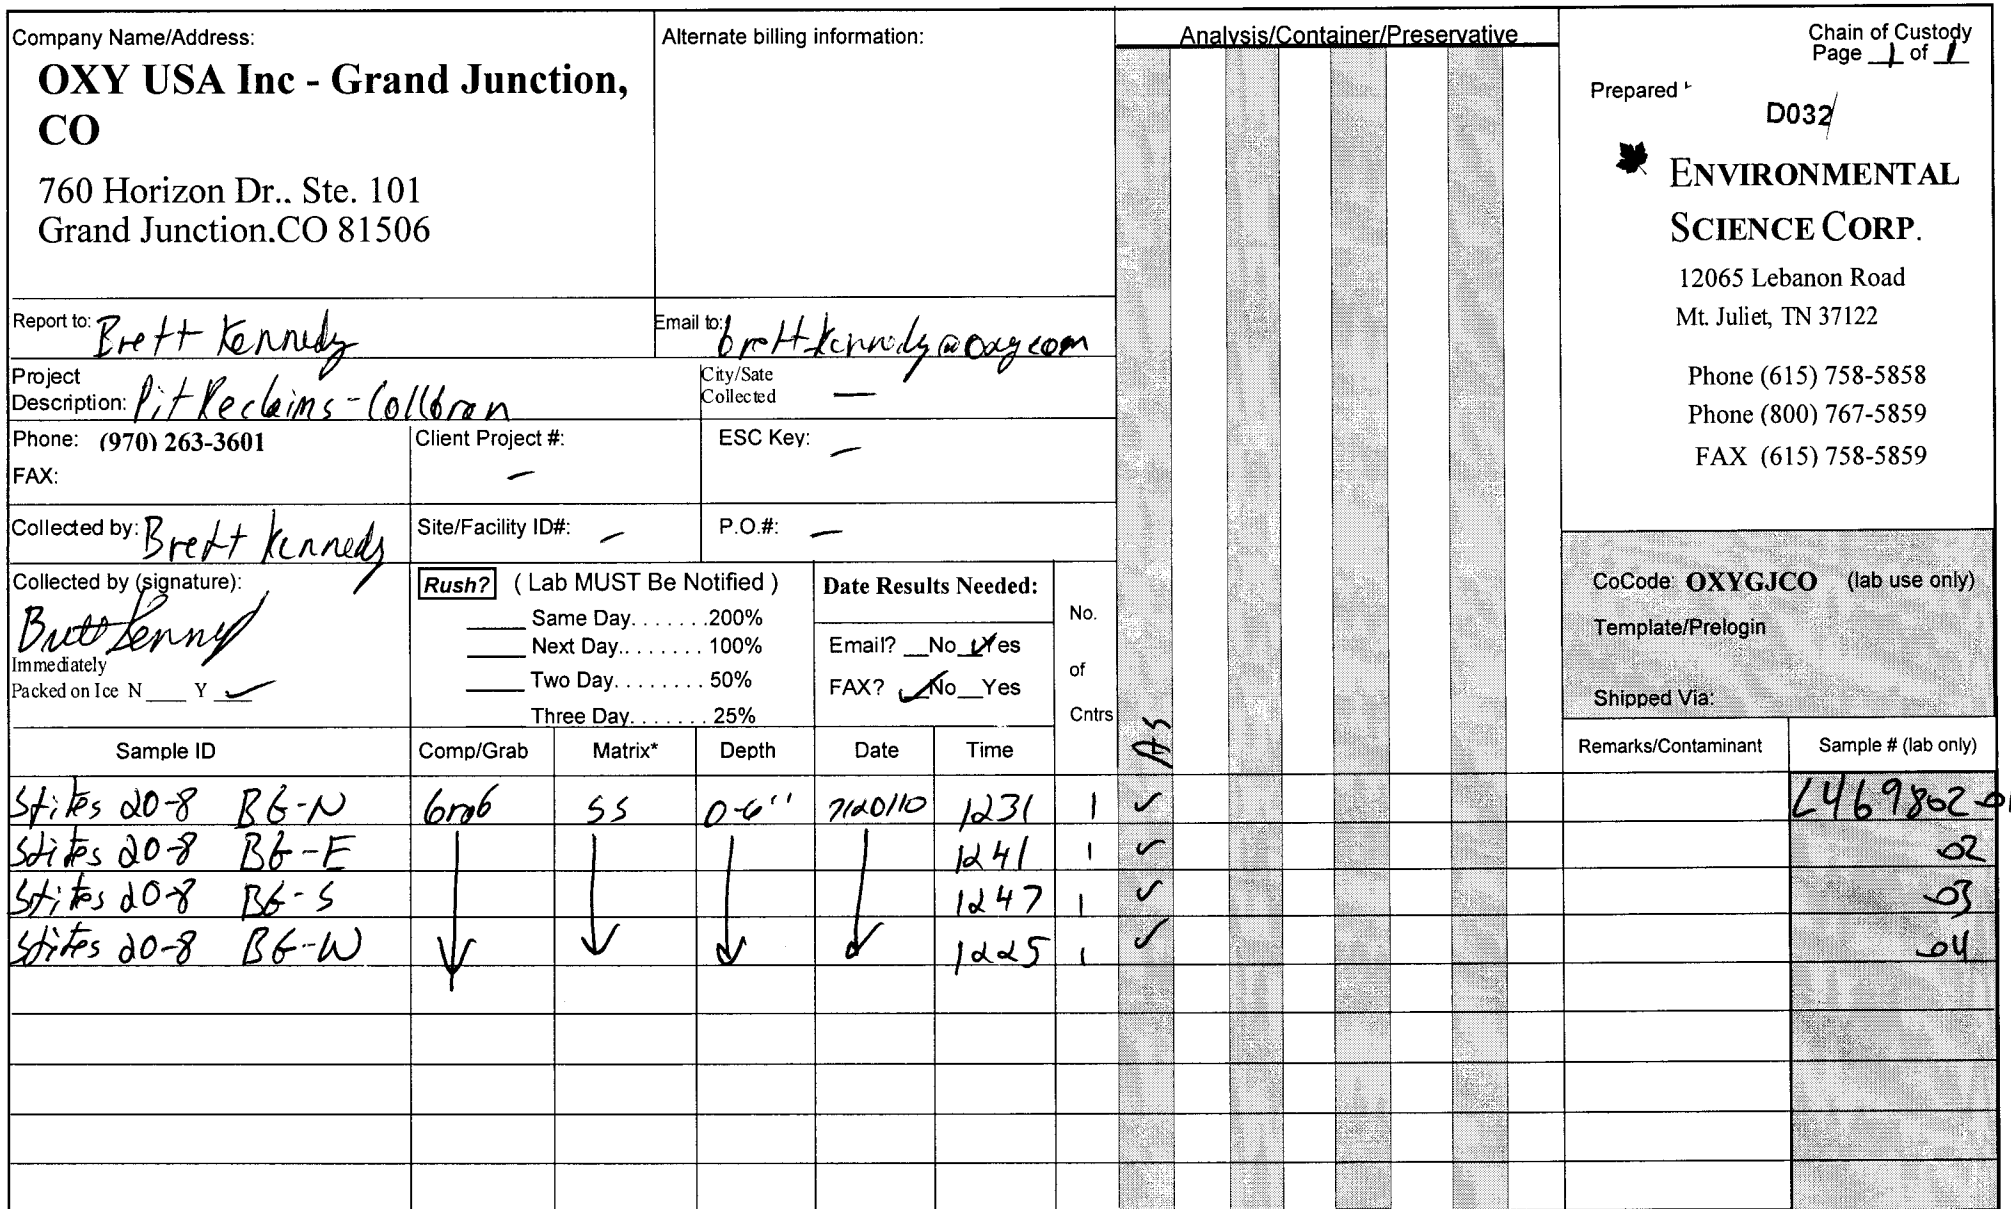 Company Name/Address:
OXY USA Inc - Grand Junction,
CO
760 Horizon Dr.. Ste. 101
Grand Junction.CO 81506
Alternate billing information:
Analysis/Container/Preservative
Chain of Custody
Page 1 of 1
Prepared
D032
ENVIRONMENTAL
SCIENCE CORP.
12065 Lebanon Road
Mt. Juliet, TN 37122
Phone (615) 758-5858
Phone (800) 767-5859
FAX (615) 758-5859
Report to: Brett Kennedy
Email to: brett_kennedy@oxy.com
Project
Description: Pit Reclaims - Collbran
City/Sate
Collected —
Phone: (970) 263-3601
FAX:
Client Project #: –
ESC Key: –
Collected by: Brett Kennedy
Site/Facility ID#: –
P.O.#: –
Collected by (signature):
Brett Kennedy
Immediately
Packed on Ice N ___ Y ✓
Rush? ( Lab MUST Be Notified )
____ Same Day. . . . . . .200%
____ Next Day.. . . . . . . 100%
____ Two Day. . . . . . . . 50%
Three Day. . . . . . . 25%
Date Results Needed:
Email? __No ✓Yes
FAX? ✓No__Yes
No.
of
Cntrs
AS
CoCode: OXYGJCO (lab use only)
Template/Prelogin
Shipped Via:
Sample ID Comp/Grab Matrix* Depth Date Time Remarks/Contaminant Sample # (lab only)
Stites 20-8 BG-N Grab SS 0-6'' 7/20/10 1231 1 ✓ L469802-01
Stites 20-8 BG-E 1241 1 ✓ -02
Stites 20-8 BG-S 1247 1 ✓ -03
Stites 20-8 BG-W 1225 1 ✓ -04